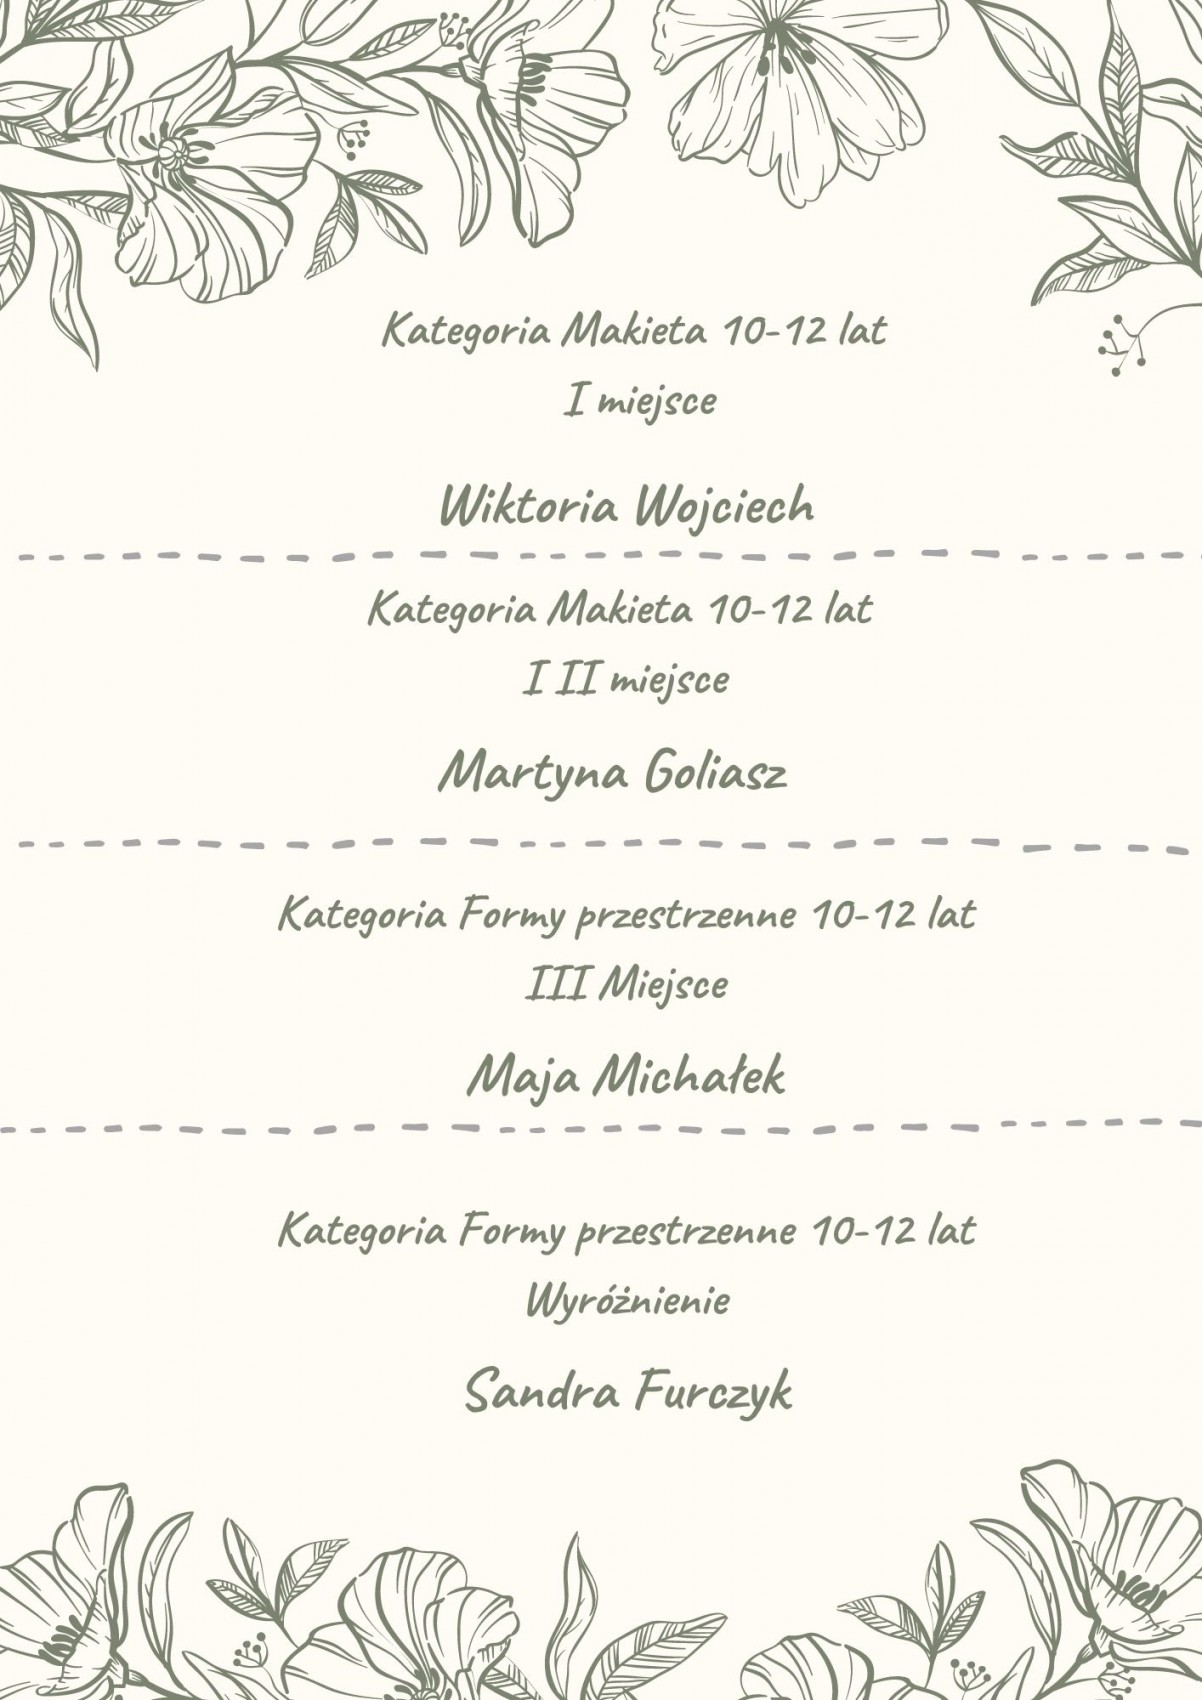 Kategoria Makieta 10-12 lat
I miejsce
Wiktoria Wojciech
Kategoria Makieta 10-12 lat
I II miejsce
Martyna Goliasz
Kategoria Formy przestrzenne 10-12 lat
III Miejsce
Maja Michałek
Kategoria Formy przestrzenne 10-12 lat
Wyróżnienie
Sandra Furczyk